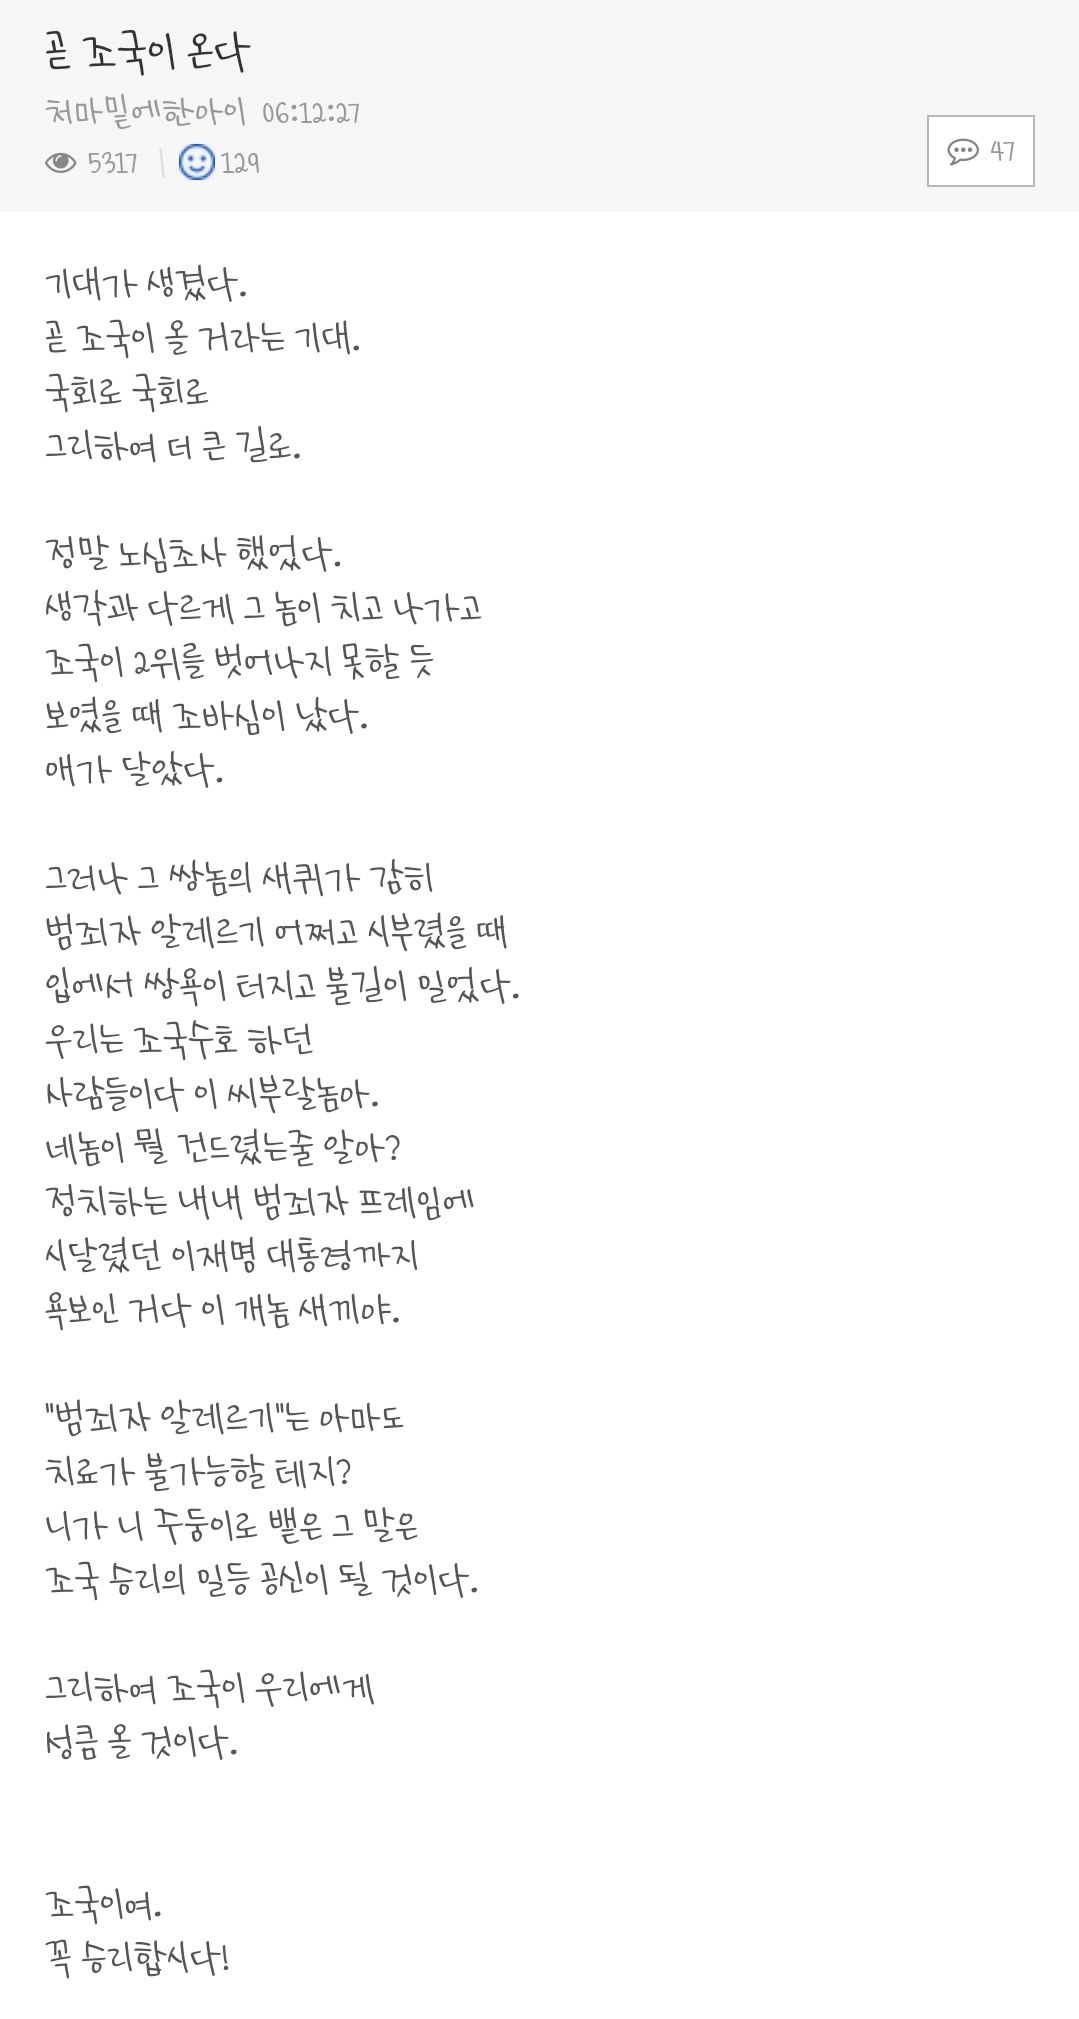 곧 조국이 온다
처마밑에한아이 06:12:27
5317 129
47
기대가 생겼다.
곧 조국이 올 거라는 기대.
국회로 국회로
그리하여 더 큰 길로.
정말 노심초사 했었다.
생각과 다르게 그 놈이 치고 나가고
조국이 2위를 벗어나지 못할 듯
보였을 때 조바심이 났다.
애가 달았다.
그러나 그 쌍놈의 새퀴가 감히
범죄자 알레르기 어쩌고 시부렸을 때
입에서 쌍욕이 터지고 불길이 일었다.
우리는 조국수호 하던
사람들이다 이 씨부랄놈아.
네놈이 뭘 건드렸는줄 알아?
정치하는 내내 범죄자 프레임에
시달렸던 이재명 대통령까지
욕보인 거다 이 개놈 새끼야.
"범죄자 알레르기"는 아마도
치료가 불가능할 테지?
니가 니 주둥이로 뱉은 그 말은
조국 승리의 일등 공신이 될 것이다.
그리하여 조국이 우리에게
성큼 올 것이다.
조국이여.
꼭 승리합시다!